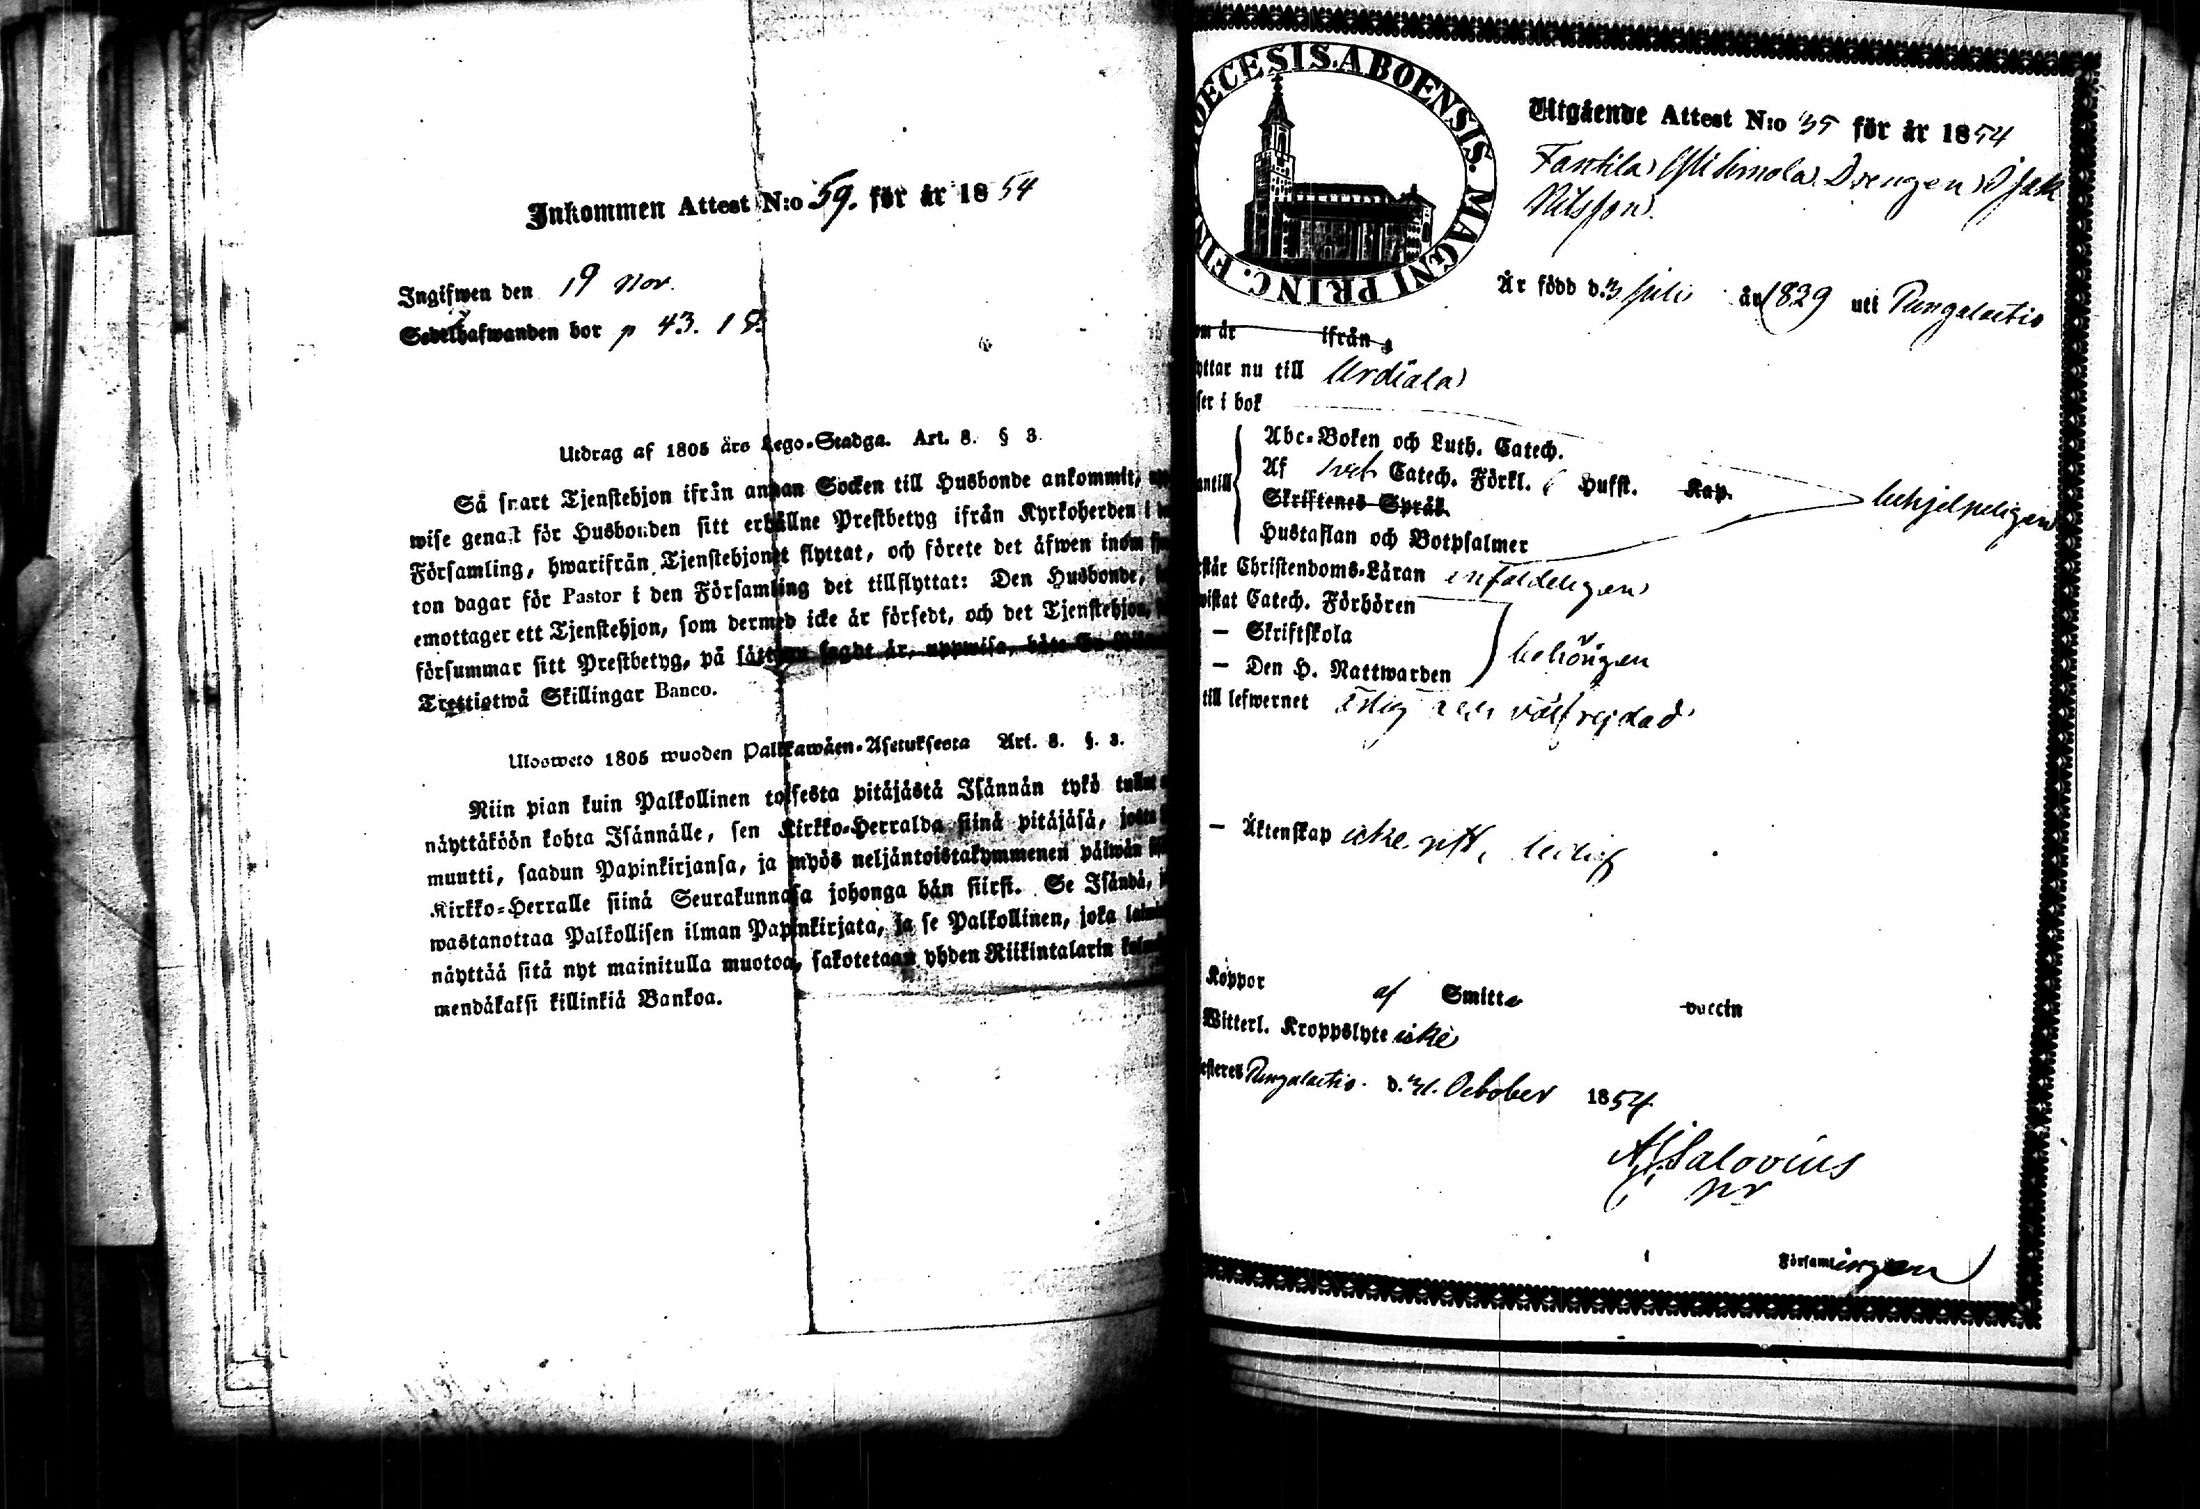 Inkommen Attest N:o 59. för år 1854
Ingifwen den 19 Nov.
Sedelhafwanden bor p 43.
Utdrag af 1805 års Lego-Stadga. Art. 8. § 3.
Så snart Tjenstehjon ifrån annan Socken till Husbonde ankommit,
wise genast för Husbonden sitt erhållne Prestbetyg ifrån Kyrkoherden i
Församling, hwarifrån Tjenstehjonet flyttat, och förete det äfwen inom
ton dagar för Pastor i den Församling det tillflyttat: Den Husbonde,
emottager ett Tjenstehjon, som dermed icke är försedt, och det Tjenstehjon,
försummar sitt Prestbetyg, på sätt nu sagdt är, uppwisa, böte En
Trettiotwå Skillingar Banco.
Ulosweto 1805 wuoden Palkkawäen-Asetuksesta Art. 8. §. 3.
Niin pian kuin Palkollinen toisesta pitäjästä Isännän tykö tullut
näyttäköön kohta Isännälle, sen Kirkko-Herralda siinä pitäjäsä, josta
muutti, saadun Papinkirjansa, ja myös neljäntoistakymmenen päiwän
Kirkko-Herralle siinä Seurakunnasa johonga hän siirsi. Se Isändä,
wastanottaa Palkollisen ilman Papinkirjata, ja se Palkollinen, joka
näyttää sitä nyt mainitulla muotoa, sakotetaan yhden Riikintalarin
mendäkaksi killinkiä Bankoa.
DIOECESIS. ABOENSIS. MAGNI PRINC. FIN
Utgående Attest N:o 35 för år 1854
Drengen
Nilsson
År född d. 3 Juli år 1829 uti Pungalaitio
om år ifrån
yttar nu till Urdiala
ser i bok
Abc-Boken och Luth. Catech.
Af Catech. Förkl. 6 Hufst. Kap.
antill
Skriftenes Språk
behjelpeligen
Hustaflan och Botpsalmer
står Christendoms-Läran enfaldeligen
wistat Catech. Förhören
— Skriftskola
behörigen
— Den H. Nattwarden
till lefwernet ärlig och välfrejdad
— Äktenskap icke gift, ledig
Koppor af Smitta vaccin
Witterl. Kroppslyte icke
esteres Pungalaitio d. 31. October 1854
A Salovius
Församlingen